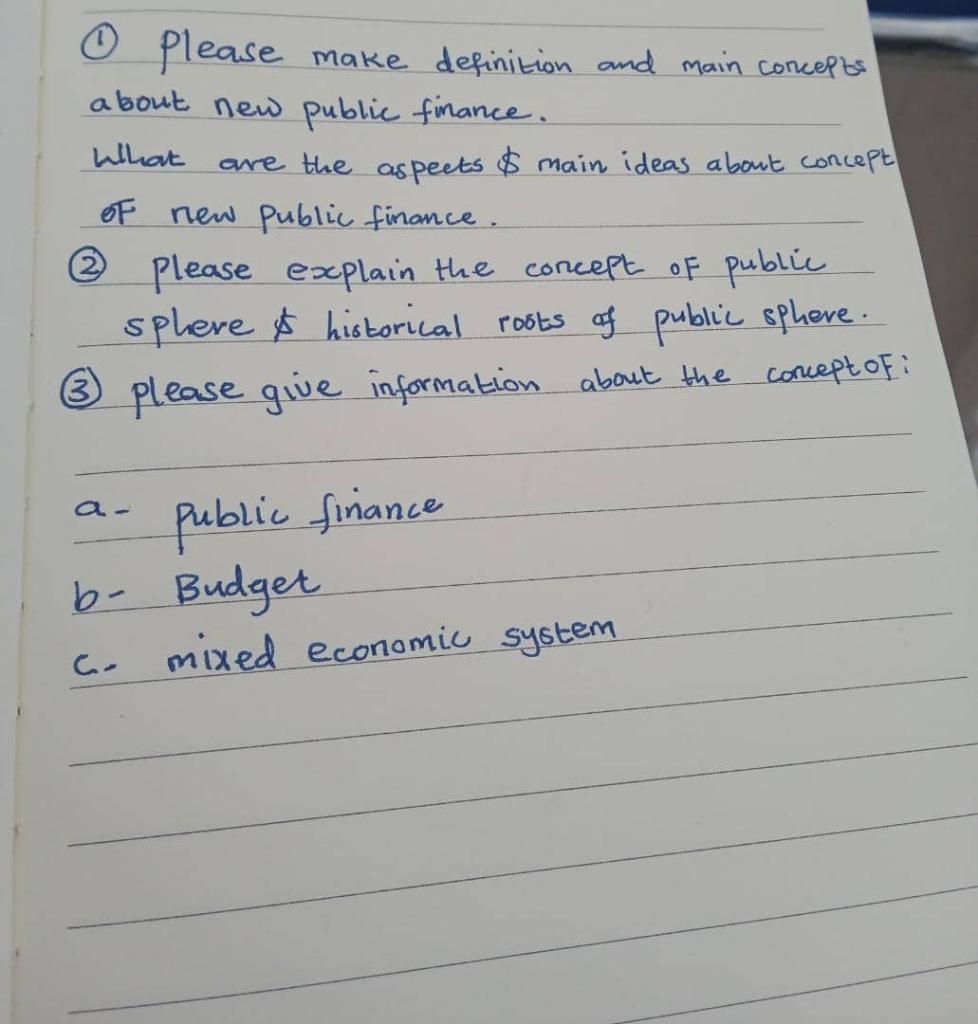 ① Please make definition and main concepts
about new public finance.
What are the aspects & main ideas about concept
of new public finance.
② please explain the concept of public
sphere & historical roots of public sphere.
③ please give information about the concept of:
a- public finance
b- Budget
c- mixed economic system